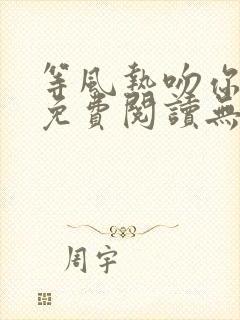 等風熱吻你
免費閱讀無
周宇